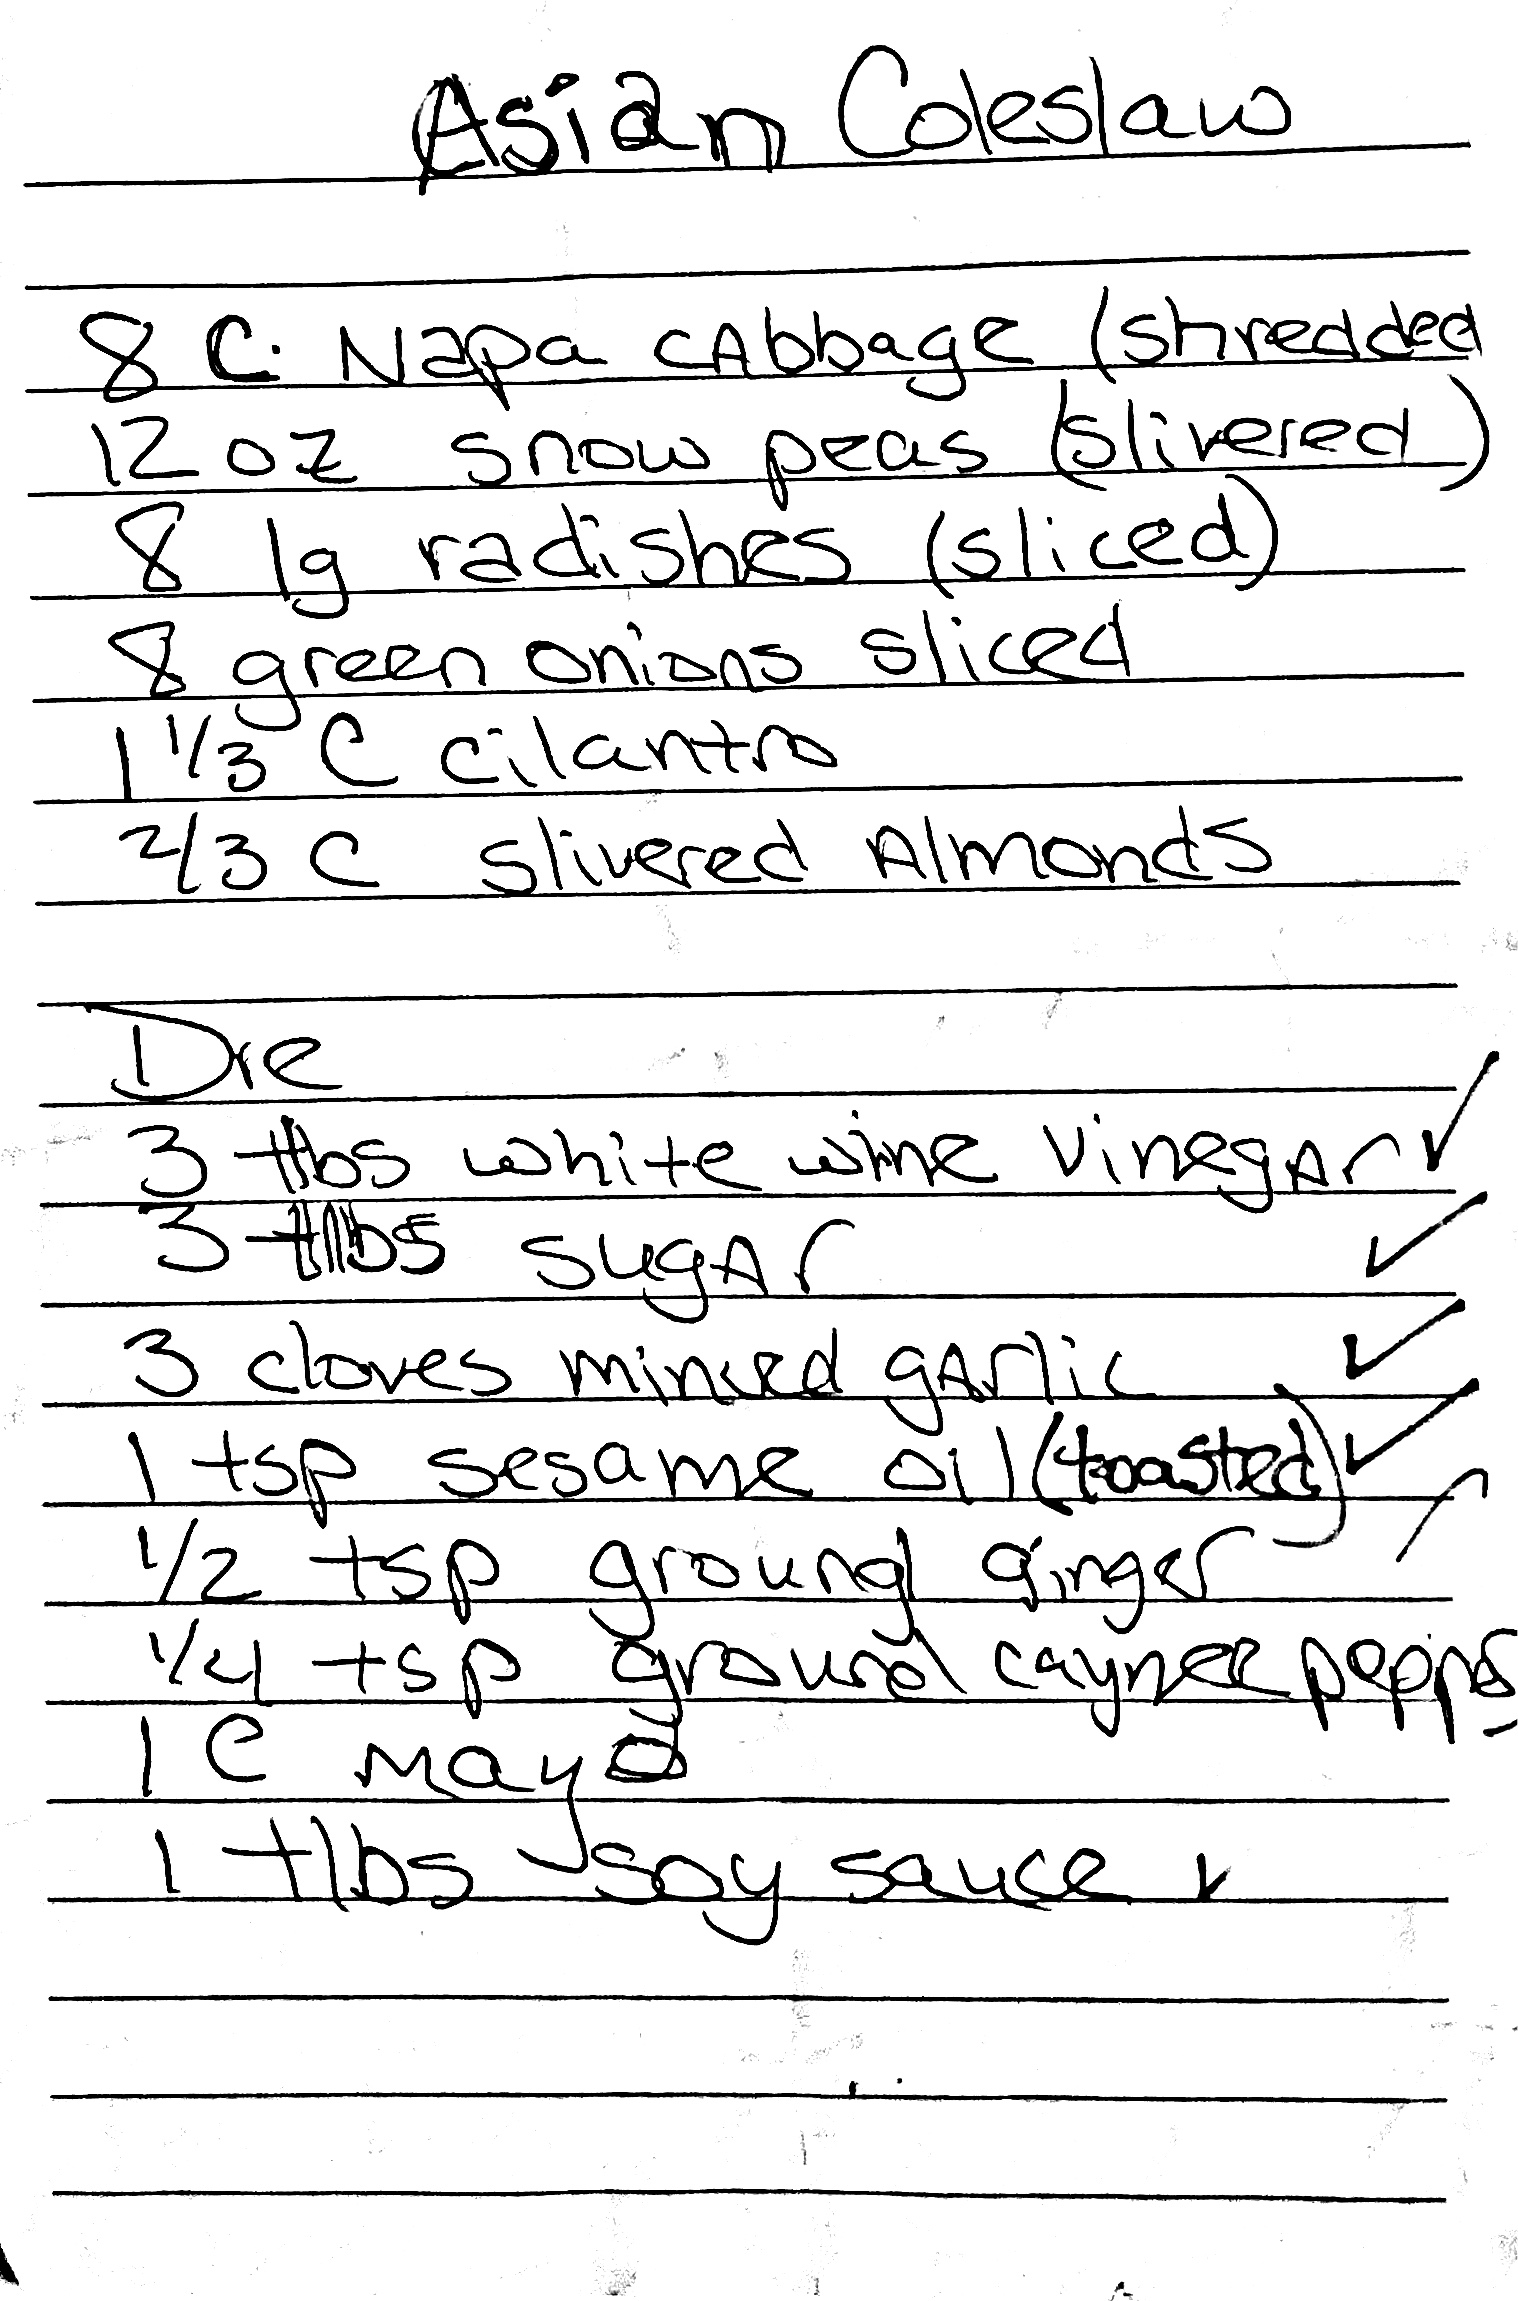 Asian Coleslaw
8 C. Napa cAbbage (shredded
12 oz snow peas (slivered)
8 lg radishes (sliced)
8 green onions sliced
1 1/3 C cilantro
2/3 C slivered Almonds
Dre
3 tlbs white wine vinegAr ✓
3 tlbs sugAr ✓
3 cloves minced gArlic ✓
1 tsp sesame oil (toasted) ✓
1/2 tsp ground ginger
1/4 tsp ground caynee pepper
1 C mayo
1 tlbs soy sauce ✓